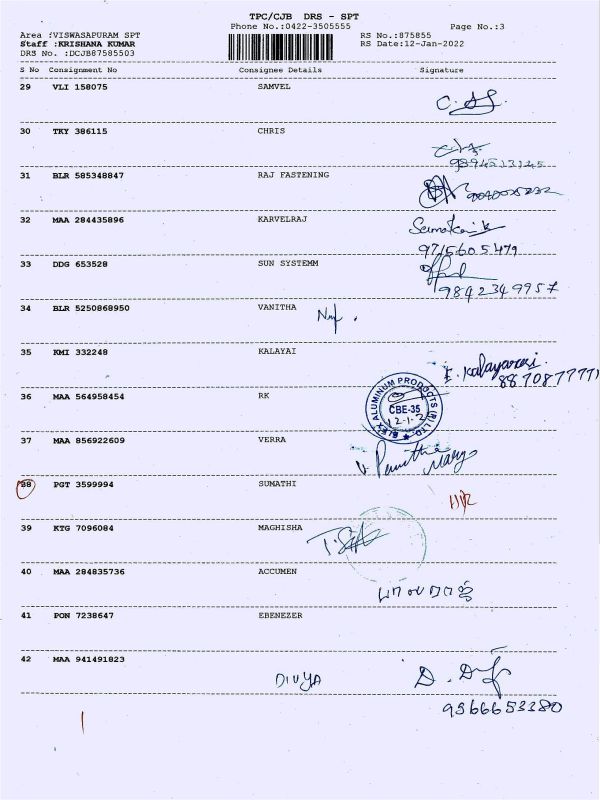 TPC/CJB DRS - SPT
Phone No.:0422-3505555
Page No.:3
Area :VISWASAPURAM SPT
Staff :KRISHANA KUMAR
DRS No. :DCJB87585503
RS No.:875855
RS Date:12-Jan-2022
S No Consignment No Consignee Details Signature
29 VLI 158075 SAMVEL
30 TKY 386115 CHRIS
31 BLR 585348847 RAJ FASTENING
32 MAA 284435896 KARVELRAJ
9715605479
33 DDG 653528 SUN SYSTEMM
9842349957
34 BLR 5250868950 VANITHA
35 KMI 332248 KALAYAI
E. Kalayarasi.
8870877771
36 MAA 564958454 RK
ALUMINUM PRODUCTS (P) LTD
CBE-35
12-1-2
37 MAA 856922609 VERRA
38 PGT 3599994 SUMATHI
39 KTG 7096084 MAGHISHA
40 MAA 284835736 ACCUMEN
41 PON 7238647 EBENEZER
42 MAA 941491823
DIVYA
9566653380